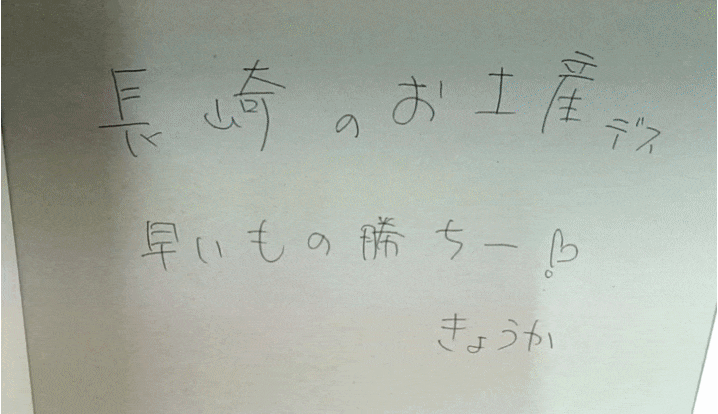 長崎のお土産デス
早いもの勝ちー!
きょうか